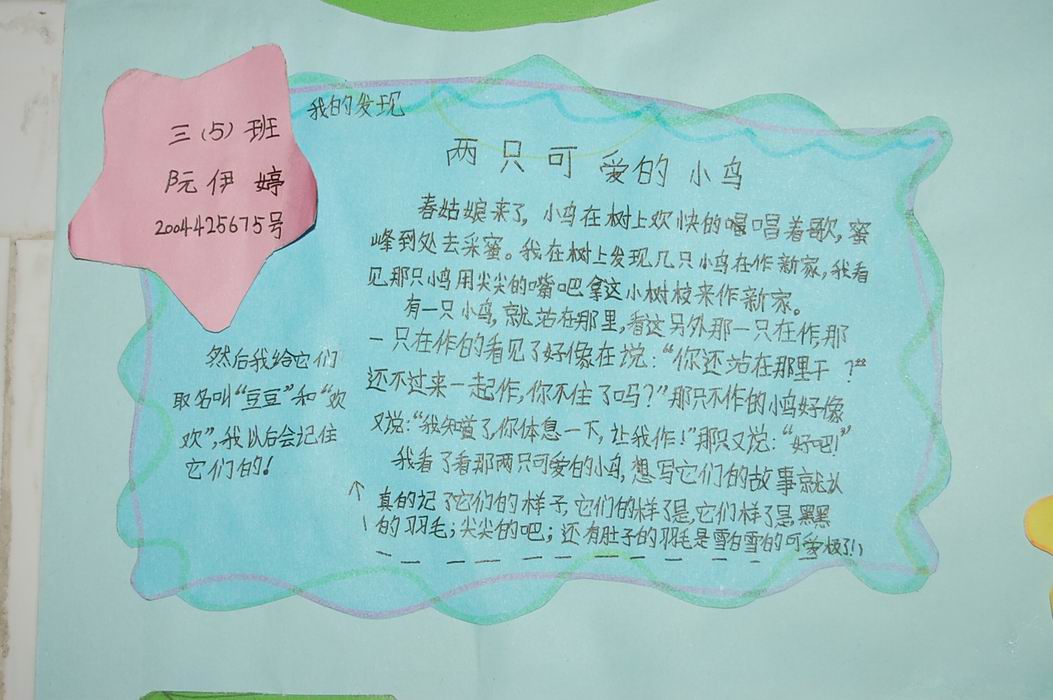 三（5）班
阮伊婷
2004425675号
我的发现
两只可爱的小鸟
春姑娘来了，小鸟在树上欢快的唱着歌，蜜
峰到处去采蜜。我在树上发现几只小鸟在作新家，我看
见那只小鸟用尖尖的嘴吧拿这小树枝来作新家。
有一只小鸟，就站在那里，看这另外那一只在作，那
一只在作的看见了好像在说：“你还站在那里干？”
还不过来一起作，你不住了吗？”那只不作的小鸟好像
又说：“我知道了，你体息一下，让我作！”那只又说：“好吧！”
我看了看那两只可爱的小鸟，想写它们的故事就认
真的记了它们的样子，它们的样子是，它们样子是，黑黑
的羽毛；尖尖的吧；还有肚子的羽毛是雪白雪的可爱极了！）
然后我给它们
取名叫“豆豆”和“欢
欢”，我以后会记住
它们的！